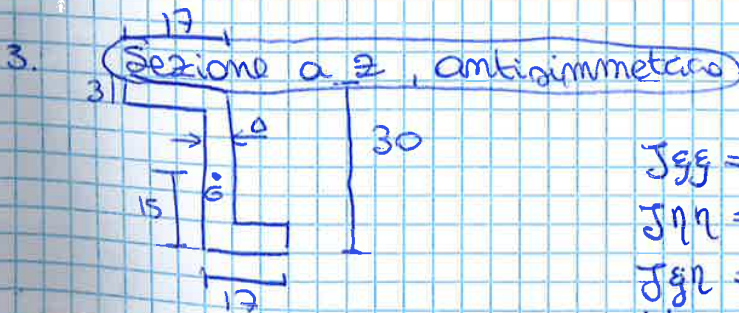 17
3. Sezione a Z, antisimmetrica
3
30
15
G
17
Jξξ =
Jηη =
Jξη =